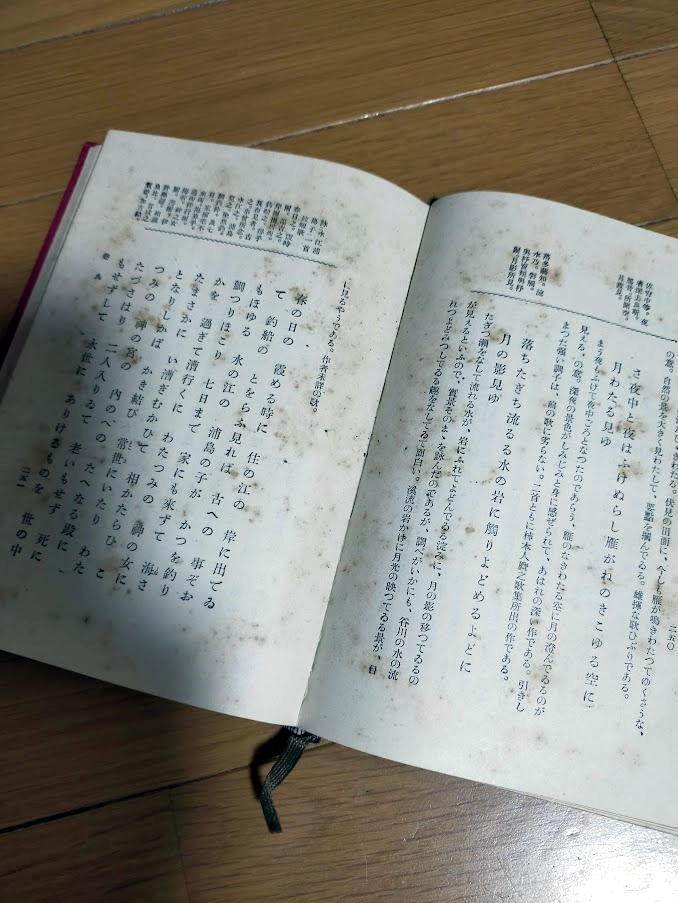 二五〇
の意。自然の景を大きく見わたして、要點を摑んでゐる。雄揮な歌ひぶりである。
さ夜中と夜はふけぬらし雁がねのきこゆる空に
月わたる見ゆ
まう夜もふけて夜中ごろとなつたのであらう、雁のなきわたる空に月の澄んでゐるのが
見える、の意。深夜の景色がしみじみと身に感ぜられて、あはれの深い作である。引きし
まつた强い調子は、前の歌に劣らない。二首ともに柿本人麿之歌集所出の作である。
落ちたぎち流るる水の岩に觸りよどめるよどに
月の影見ゆ
たぎつ瀨をなして流れる水が、岩にふれてよどんでゐる淀みに、月の影の移つてゐるの
が見えるといふので、實景そのまゝを詠んだのであるが、調べがいかにも、谷川の水の流
れつよどみつしてゐる趣をなしてゐて面白い。溪流の岩かげに月光の映つてゐる景が、目
佐宵中等。夜
者深去良斯。
鴈音。所聞空。
月渡見。
落多藝知。流
水乃。磐觸。
與杼賣類與杼
爾。月影所見。
に見るやうである。作者未詳の歌。
春の日の　霞める時に　住の江の　岸に出でゐ
て　釣船の　とをらふ見れば　古への　事ぞお
もほゆる　水の江の　浦島の子が　かつを釣り
鯛つりほこり　七日まで　家にも來ずて　海さ
かを　過ぎて漕行くに　わたつみの　神の女に
たまさかに　い漕ぎむかひて　相かたらひ　こ
となりしかば　かき結び　常世にいたり　わた
つみの　神の宮の　内のへの　たへなる殿に
たづさはり　二人入りゐて　老いもせず　死に
もせずして　永世に　ありけるものを　世の中
卷　九
二五一